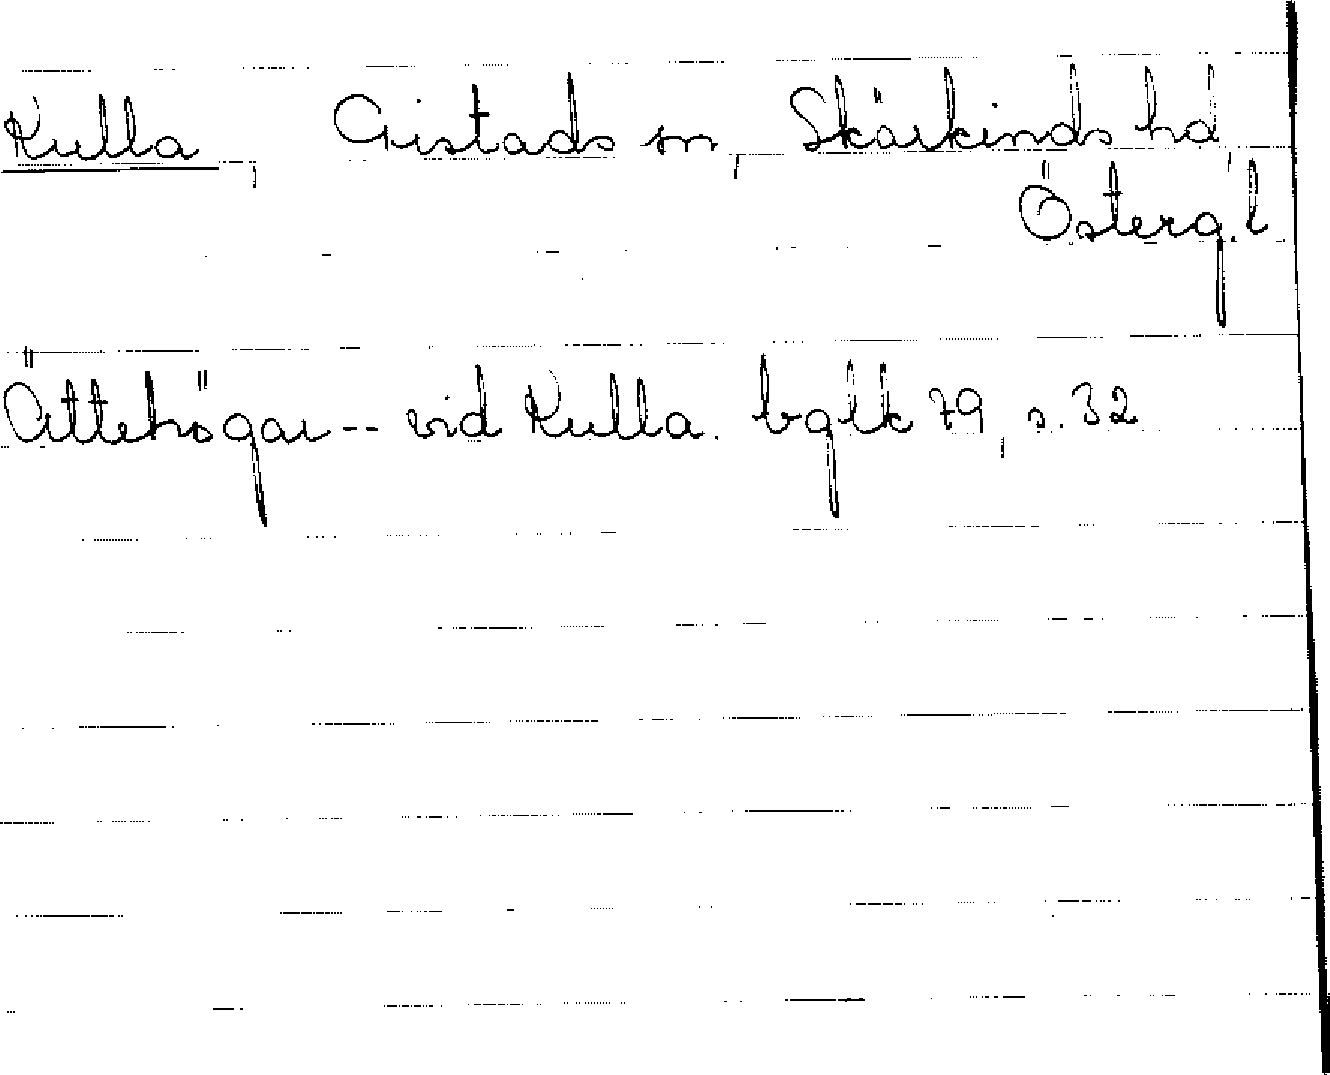 Kulla, Gistads sn, Skärkinds hd,
Österg. l
Ättehögar -- vid Kulla. bglk 79, s. 32